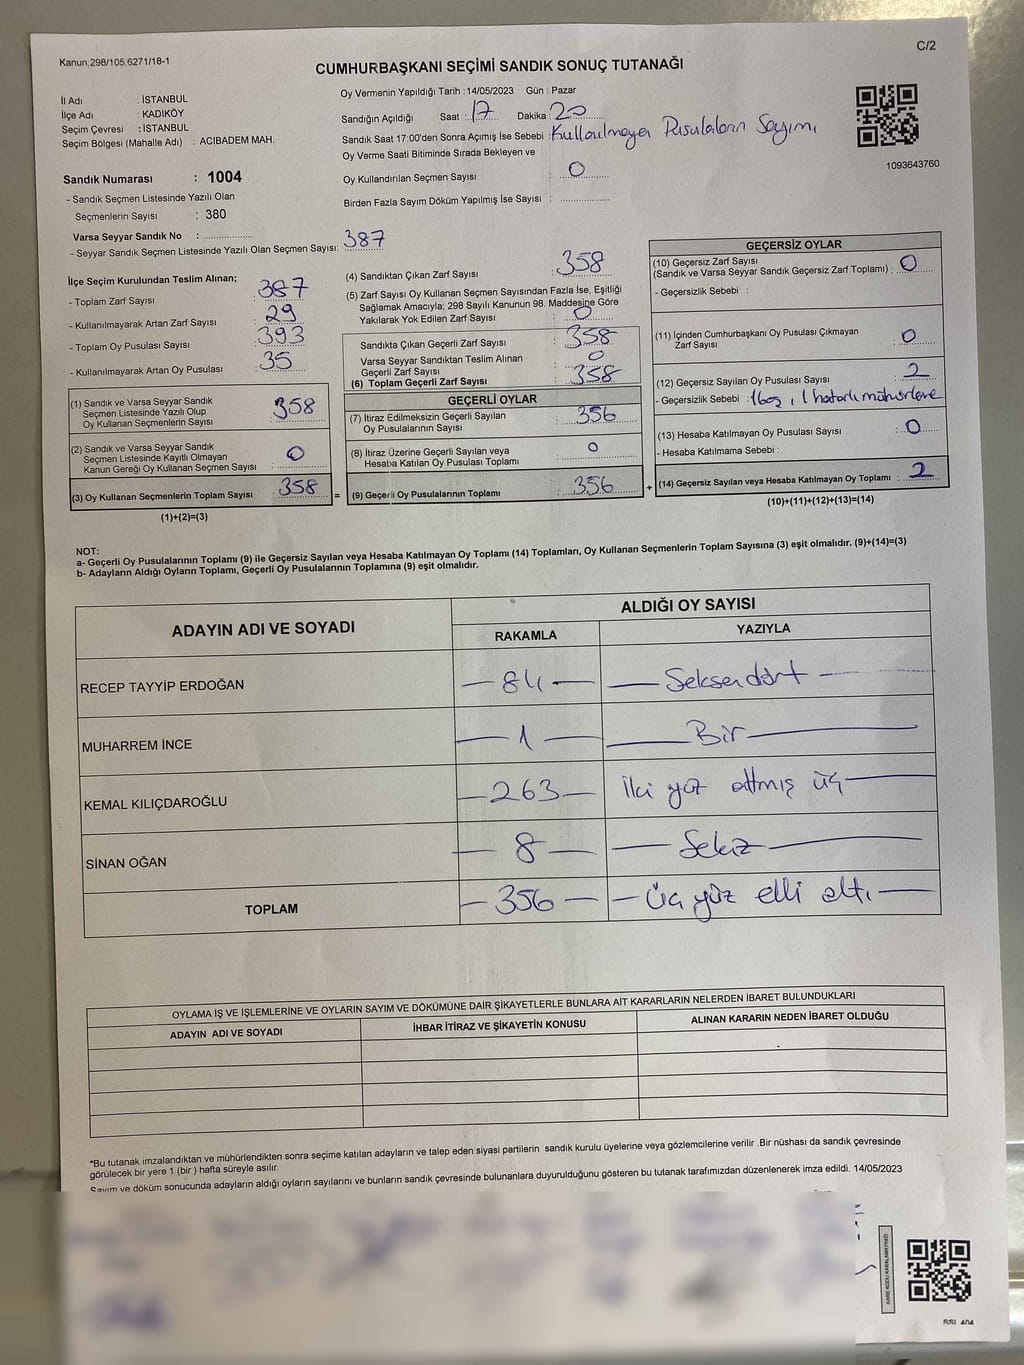 Kanun;298/105,6271/18-1
C/2
CUMHURBAŞKANI SEÇİMİ SANDIK SONUÇ TUTANAĞI
İl Adı : İSTANBUL
İlçe Adı : KADIKÖY
Seçim Çevresi : İSTANBUL
Seçim Bölgesi (Mahalle Adı) : ACIBADEM MAH.
Oy Vermenin Yapıldığı Tarih :14/05/2023 Gün : Pazar
Sandığın Açıldığı Saat : 17 Dakika : 20
Sandık Saat 17:00'den Sonra Açımış İse Sebebi : Kullanılmayan Pusulaların Sayımı
Oy Verme Saati Bitiminde Sırada Bekleyen ve
Oy Kullandırılan Seçmen Sayısı : 0
Birden Fazla Sayım Döküm Yapılmış İse Sayısı :
1093643760
Sandık Numarası : 1004
- Sandık Seçmen Listesinde Yazılı Olan
Seçmenlerin Sayısı : 380
Varsa Seyyar Sandık No :
- Seyyar Sandık Seçmen Listesinde Yazılı Olan Seçmen Sayısı: 387
İlçe Seçim Kurulundan Teslim Alınan;
- Toplam Zarf Sayısı : 387
- Kullanılmayarak Artan Zarf Sayısı : 29
- Toplam Oy Pusulası Sayısı : 393
- Kullanılmayarak Artan Oy Pusulası : 35
(1) Sandık ve Varsa Seyyar Sandık
Seçmen Listesinde Yazılı Olup
Oy Kullanan Seçmenlerin Sayısı : 358
(2) Sandık ve Varsa Seyyar Sandık
Seçmen Listesinde Kayıtlı Olmayan
Kanun Gereği Oy Kullanan Seçmen Sayısı : 0
(3) Oy Kullanan Seçmenlerin Toplam Sayısı : 358 =
(1)+(2)=(3)
(4) Sandıktan Çıkan Zarf Sayısı : 358
(5) Zarf Sayısı Oy Kullanan Seçmen Sayısından Fazla İse, Eşitliği
Sağlamak Amacıyla; 298 Sayılı Kanunun 98. Maddesine Göre
Yakılarak Yok Edilen Zarf Sayısı : 0
Sandıkta Çıkan Geçerli Zarf Sayısı : 358
Varsa Seyyar Sandıktan Teslim Alınan
Geçerli Zarf Sayısı : 0
(6) Toplam Geçerli Zarf Sayısı : 358
GEÇERLİ OYLAR
(7) İtiraz Edilmeksizin Geçerli Sayılan
Oy Pusulalarının Sayısı : 356
(8) İtiraz Üzerine Geçerli Sayılan veya
Hesaba Katılan Oy Pusulası Toplamı : 0
(9) Geçerli Oy Pusulalarının Toplamı : 356 +
GEÇERSİZ OYLAR
(10) Geçersiz Zarf Sayısı
(Sandık ve Varsa Seyyar Sandık Geçersiz Zarf Toplamı) : 0
- Geçersizlik Sebebi :
(11) İçinden Cumhurbaşkanı Oy Pusulası Çıkmayan
Zarf Sayısı : 0
(12) Geçersiz Sayılan Oy Pusulası Sayısı : 2
- Geçersizlik Sebebi : 1 boş, 1 hatalı mühürleme
(13) Hesaba Katılmayan Oy Pusulası Sayısı : 0
- Hesaba Katılmama Sebebi :
(14) Geçersiz Sayılan veya Hesaba Katılmayan Oy Toplamı : 2
(10)+(11)+(12)+(13)=(14)
NOT:
a- Geçerli Oy Pusulalarının Toplamı (9) ile Geçersiz Sayılan veya Hesaba Katılmayan Oy Toplamı (14) Toplamları, Oy Kullanan Seçmenlerin Toplam Sayısına (3) eşit olmalıdır. (9)+(14)=(3)
b- Adayların Aldığı Oyların Toplamı, Geçerli Oy Pusulalarının Toplamına (9) eşit olmalıdır.
ADAYIN ADI VE SOYADI ALDIĞI OY SAYISI
RAKAMLA YAZIYLA
RECEP TAYYİP ERDOĞAN 84 Seksendört
MUHARREM İNCE 1 Bir
KEMAL KILIÇDAROĞLU 263 İki yüz altmış üç
SİNAN OĞAN 8 Sekiz
TOPLAM 356 Üç yüz elli altı
OYLAMA İŞ VE İŞLEMLERİNE VE OYLARIN SAYIM VE DÖKÜMÜNE DAİR ŞİKAYETLERLE BUNLARA AİT KARARLARIN NELERDEN İBARET BULUNDUKLARI
ADAYIN ADI VE SOYADI İHBAR İTİRAZ VE ŞİKAYETİN KONUSU ALINAN KARARIN NEDEN İBARET OLDUĞU
*Bu tutanak imzalandıktan ve mühürlendikten sonra seçime katılan adayların ve talep eden siyasi partilerin sandık kurulu üyelerine veya gözlemcilerine verilir .Bir nüshası da sandık çevresinde
görülecek bir yere 1 (bir ) hafta süreyle asılır.
Sayım ve döküm sonucunda adayların aldığı oyların sayılarını ve bunların sandık çevresinde bulunanlara duyurulduğunu gösteren bu tutanak tarafımızdan düzenlenerek imza edildi. 14/05/2023